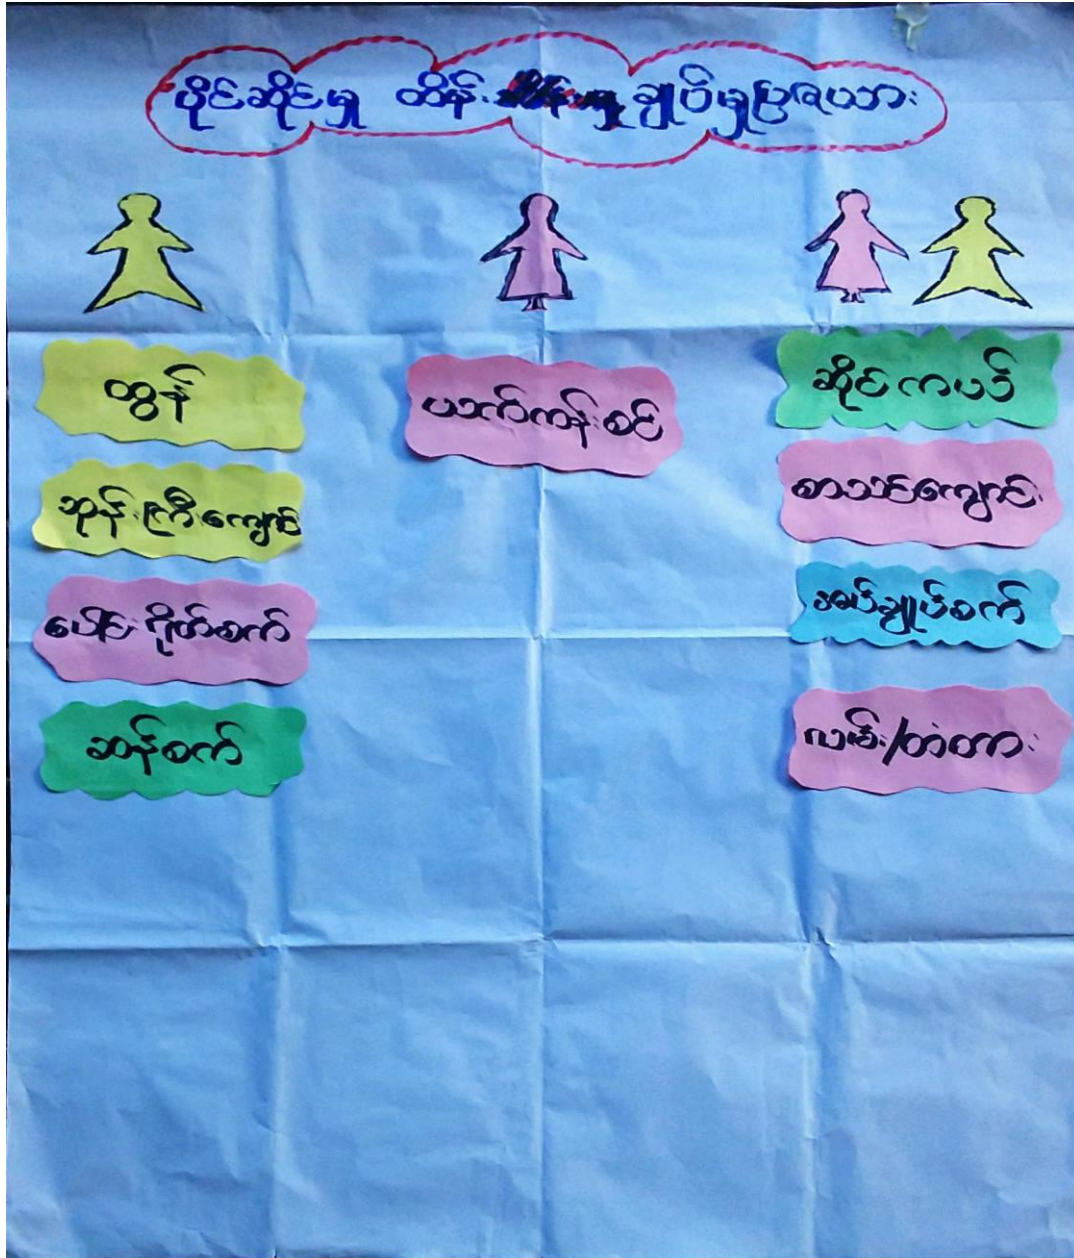 ပိုင်ဆိုင်မှု ထိန်းချုပ်မှုပြဇယား
ထွန်
ဘုန်းကြီးကျောင်း
ပေါင်းဂိုတ်စက်
ဆန်စက်
ယက်ကန်းစင်
ဆိုင်ကယ်
စာသင်ကျောင်း
အပ်ချုပ်စက်
လမ်း/တံတား